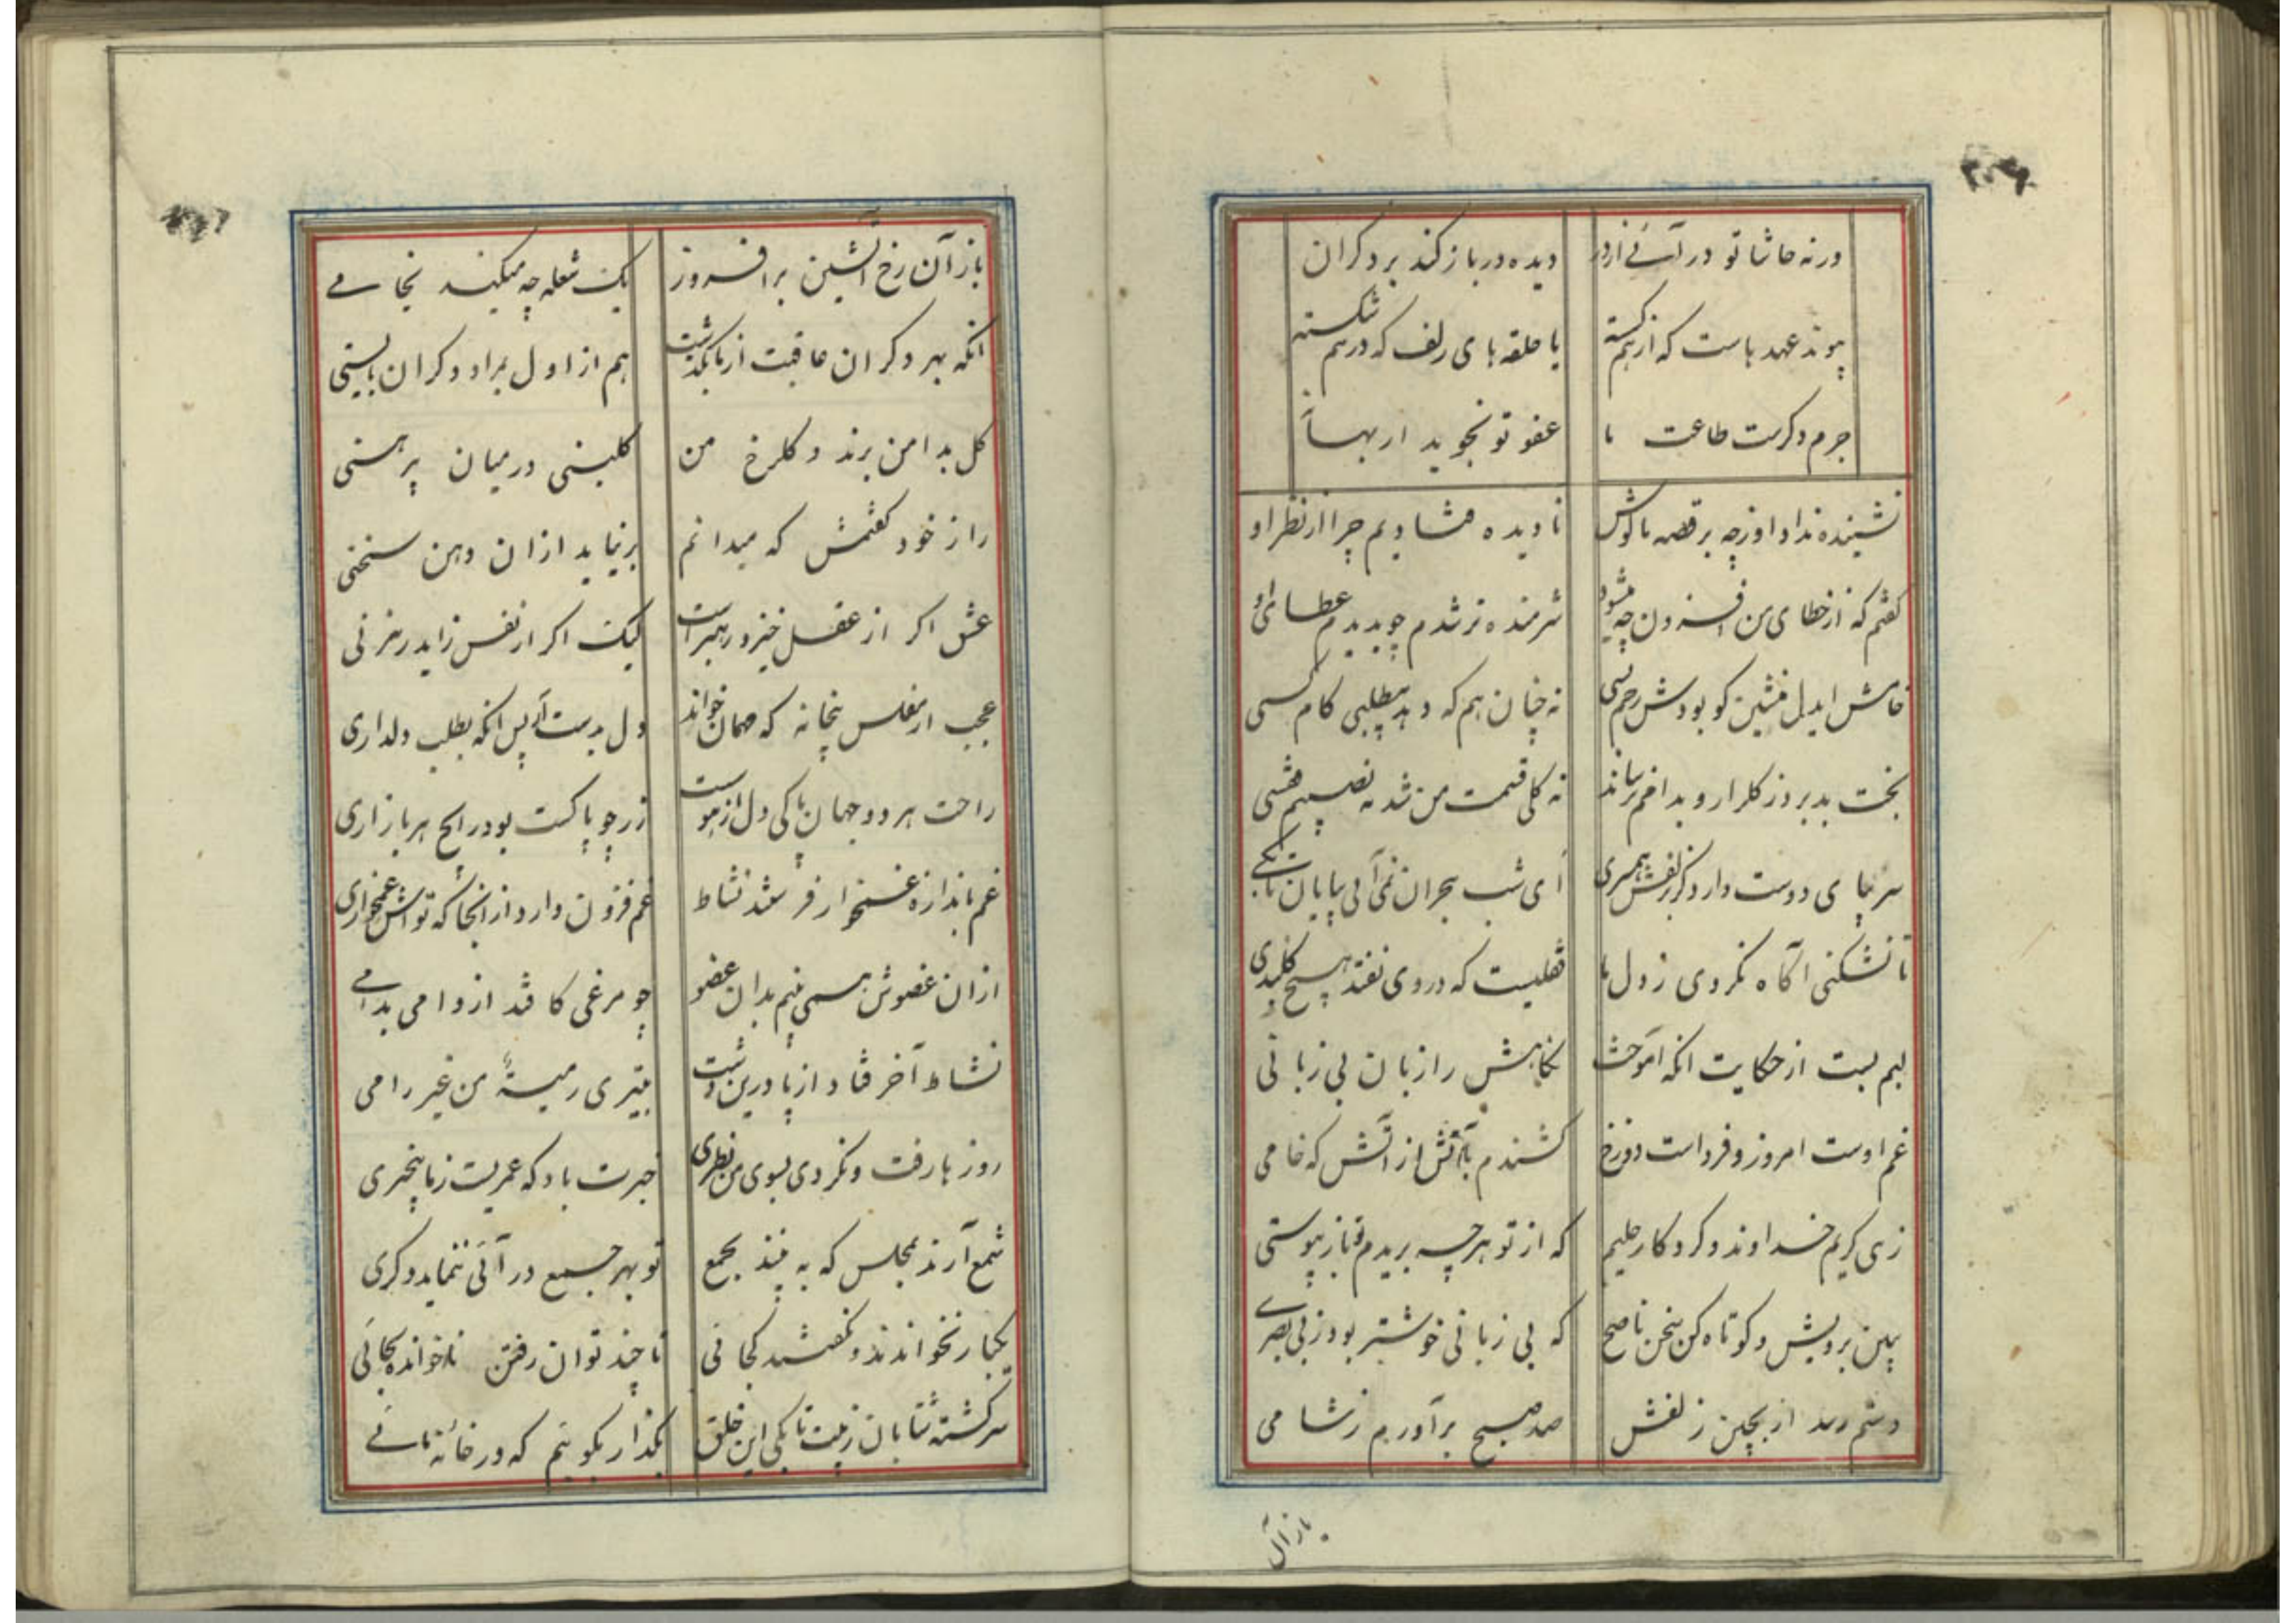 ورنه حاشا تو در آئے از در دیده در باز کند بر دکران
پیوند عهد ماست که از هم کسسته یا حلقه های زلف که در هم شکسته
جرم دکرست طاعت ما عفو تو نجوید ار بهاً
نشینده نداد او ز چه بر قصه ما کوش نادیده فتادیم چرا از نظر او
کفتم که از خطای من افزون چه میشود شرمنده تر شدم چو بدیدم عطای او
خامش ایدل منشین کو بودش رحم بسی نه چنان هم که دهد بیطلبی کام کسی
بخت بد برد ز کلزار و بدامم نرساند نه کلی قسمت من شد نه نصیبم قفسی
سر بپای دوست دارد کر زلفش همسری ای شب هجران نمی آئی بپایان تا بکے
تا نشکنی آکاه نکردی ز دل ما قفلیست که در وی نفتد هیچ کلیدی
لبم بست از حکایت انکه آموخت نکاهش را زبان بی زبانی
غم اوست امروز و فرداست دوزخ کشندم بآتش از آتش که خامی
زهی کریم خداوند و کردکار حلیم که از تو هر چه بریدم تو باز پیوستی
ببین برویش و کوتاه کن سخن ناصح که بی زبانی خوشتر بود ز بی بصرے
دستم رسد ار بچین زلفش صد صبح برآورم ز شامی
باز آن
باز آن رخ آتشین برافروز یک شعله چه میکند بخامے
انکه بهر دکران عاقبت از ما بگذشت هم از اول بمراد دکران بایستی
کل بدامن برند و کلرخ من کلبنی در میان پیرهنی
راز خود کفتمش که میدانم بر نیاید ازان دهن سخنی
عشق اکر از عقل خیزد رهبر است لیک اکر از نفس زاید رهزنی
عجب ار مفلس بیخانه که مهمان خواند دل بدست آر پس انکه بطلب دلداری
راحت هر دو جهان پاکی دل ازهوست زر چو پاکست بود رایج هر بازاری
غم باندازه غمخوار فرستد نشاط غم فزون دارد از انجا که تواش غمخواری
از ان عضوش همی بینم بدان عضو چو مرغی کافتد از دامی بدامے
نشاط آخر فتاد از پا درین دشت بتیری رمیدهٔ من غیر رامی
روزها رفت و نکردی بسوی من نظری خبرت باد که عمریست ز ما بیخبری
شمع آرند بمجلس که به بینند بجمع تو بهر جمع در آئی ننماید دکری
یکبار نخواندند و نکفتند کجائی تا چند توان رفتن ناخوانده بجائی
سرکشته شتابان ز پیت تا بکی این خلق بکذار بکویم که در خانهٔ مائے